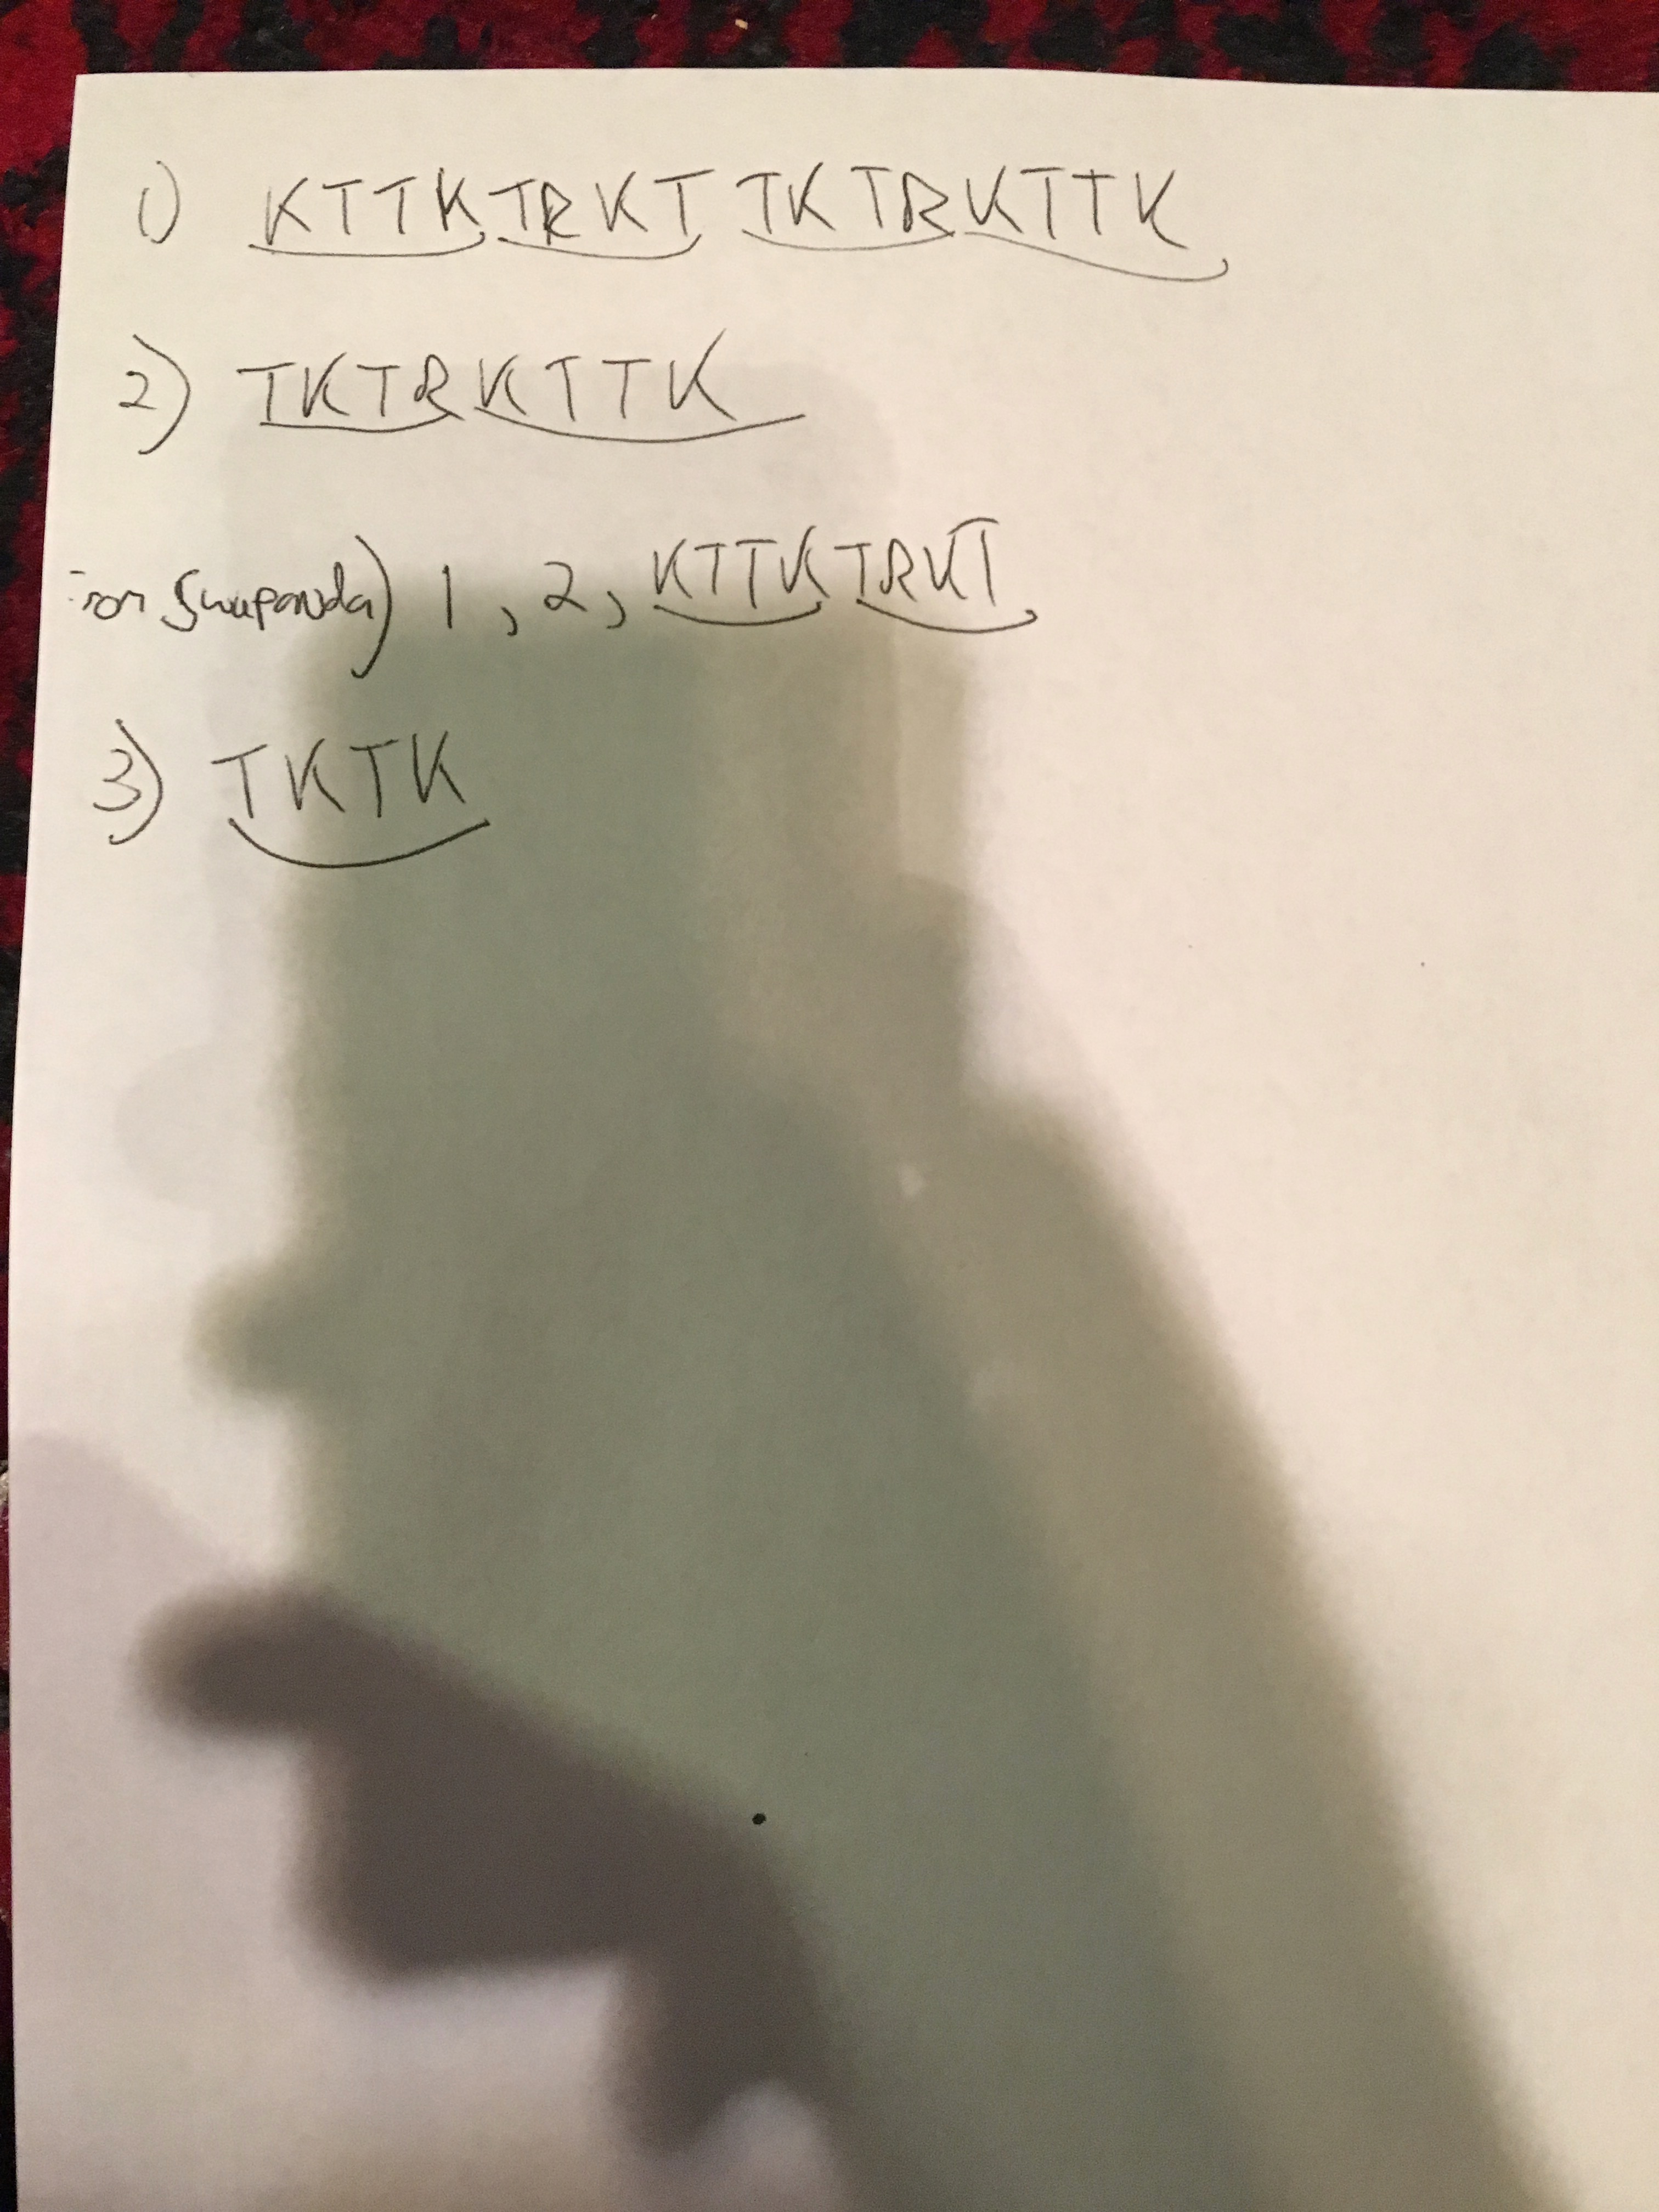 1) KTTKTRKT TKTRKTTK
2) TKTRKTTK
Swapanda) 1, 2, KTTKTRKT
3) TKTK